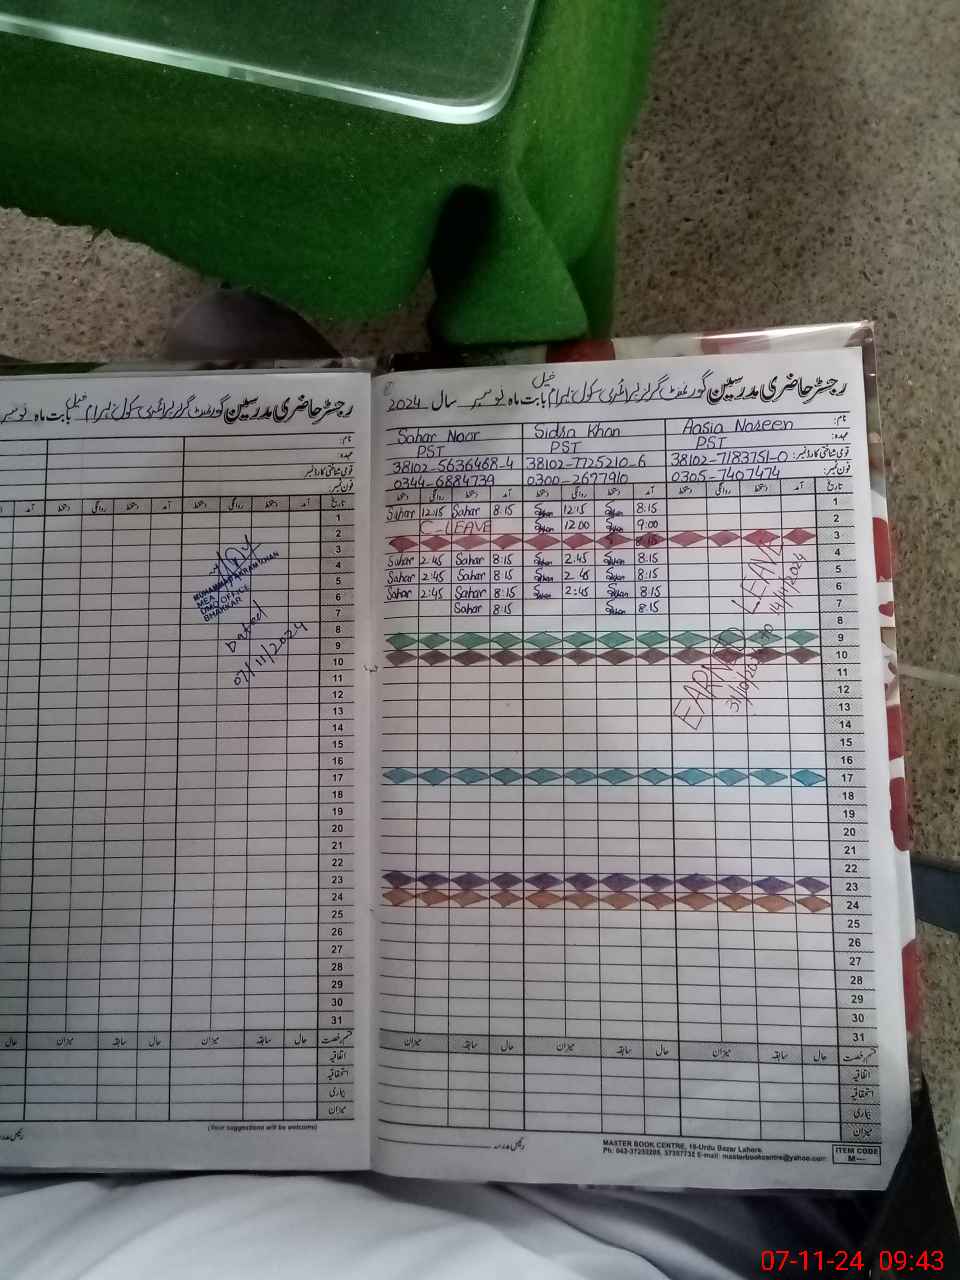 رجسٹر حاضری مدرسین گورنمنٹ گرلز پرائمری سکول بابت ماہ نومبر
نام:
عہدہ:
قومی شناختی کارڈ نمبر:
فون نمبر:
آمد دستخط روانگی دستخط آمد دستخط روانگی دستخط آمد تاریخ
1
2
3
4
5
6
7
8
9
10
11
12
13
14
15
16
17
18
19
20
21
22
23
24
25
26
27
28
29
30
31
MUHAMMAD AKRAM KHAN
MEA
DMO OFFICE
BHAKKAR
Dated
07/11/2024
حال میزان سابقہ حال میزان سابقہ حال قسم رخصت
اتفاقیہ
استحقاقیہ
بیماری
میزان
(Your suggestions will be welcome)
رجسٹر حاضری مدرسین گورنمنٹ گرلز پرائمری سکول بہرام خیل بابت ماہ نومبر سال 2024
نام: Aasia Naseen Sidra Khan Sahar Noor
عہدہ: PST PST PST
قومی شناختی کارڈ نمبر: 38102-7183751-0 38102-7725210-6 38102-5636468-4
فون نمبر: 0305-7407474 0300-2677910 0344-6884739
تاریخ آمد دستخط روانگی دستخط آمد دستخط روانگی دستخط آمد دستخط روانگی دستخط
Sahar 12:15 Sahar 8:15 12:15 8:15 1
C-LEAVE 12:00 9:00 2
8:15 3
Sahar 2:45 Sahar 8:15 2:45 8:15 4
Sahar 2:45 Sahar 8:15 2:45 8:15 5
Sahar 2:45 Sahar 8:15 2:45 8:15 6
Sahar 8:15 8:15 7
8
9
10
11
12
13
14
15
16
17
18
19
20
21
22
23
24
25
26
27
28
29
30
31
EARNED LEAVE
31/10/2024 to 14/11/2024
قسم رخصت حال سابقہ میزان حال سابقہ میزان حال سابقہ میزان
اتفاقیہ
استحقاقیہ
بیماری
میزان
رئیس مدرسہ
MASTER BOOK CENTRE, 19-Urdu Bazar Lahore.
Ph: 042-37233205, 37357732 E-mail: masterbookcentre@yahoo.com
ITEM CODE
M---
07-11-24 09:43